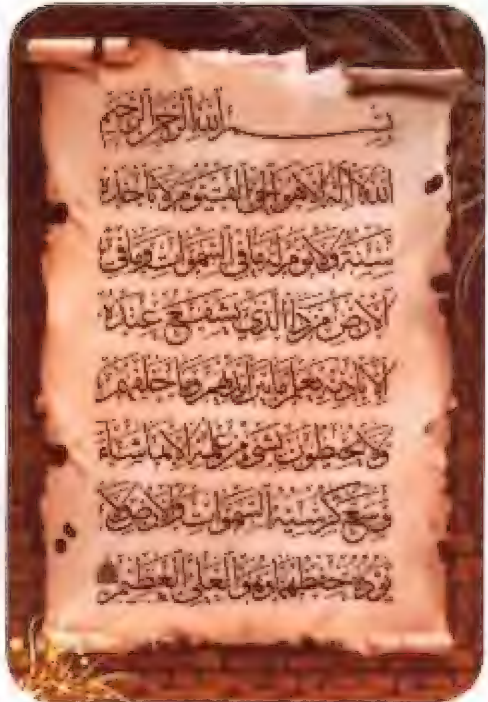 بِسْمِ اللَّهِ الرَّحْمَٰنِ الرَّحِيمِ
اللَّهُ لَا إِلَٰهَ إِلَّا هُوَ الْحَيُّ الْقَيُّومُ لَا تَأْخُذُهُ
سِنَةٌ وَلَا نَوْمٌ لَهُ مَا فِي السَّمَاوَاتِ وَمَا فِي
الْأَرْضِ مَنْ ذَا الَّذِي يَشْفَعُ عِنْدَهُ
إِلَّا بِإِذْنِهِ يَعْلَمُ مَا بَيْنَ أَيْدِيهِمْ وَمَا خَلْفَهُمْ
وَلَا يُحِيطُونَ بِشَيْءٍ مِنْ عِلْمِهِ إِلَّا بِمَا شَاءَ
وَسِعَ كُرْسِيُّهُ السَّمَاوَاتِ وَالْأَرْضَ وَلَا
يَئُودُهُ حِفْظُهُمَا وَهُوَ الْعَلِيُّ الْعَظِيمُ